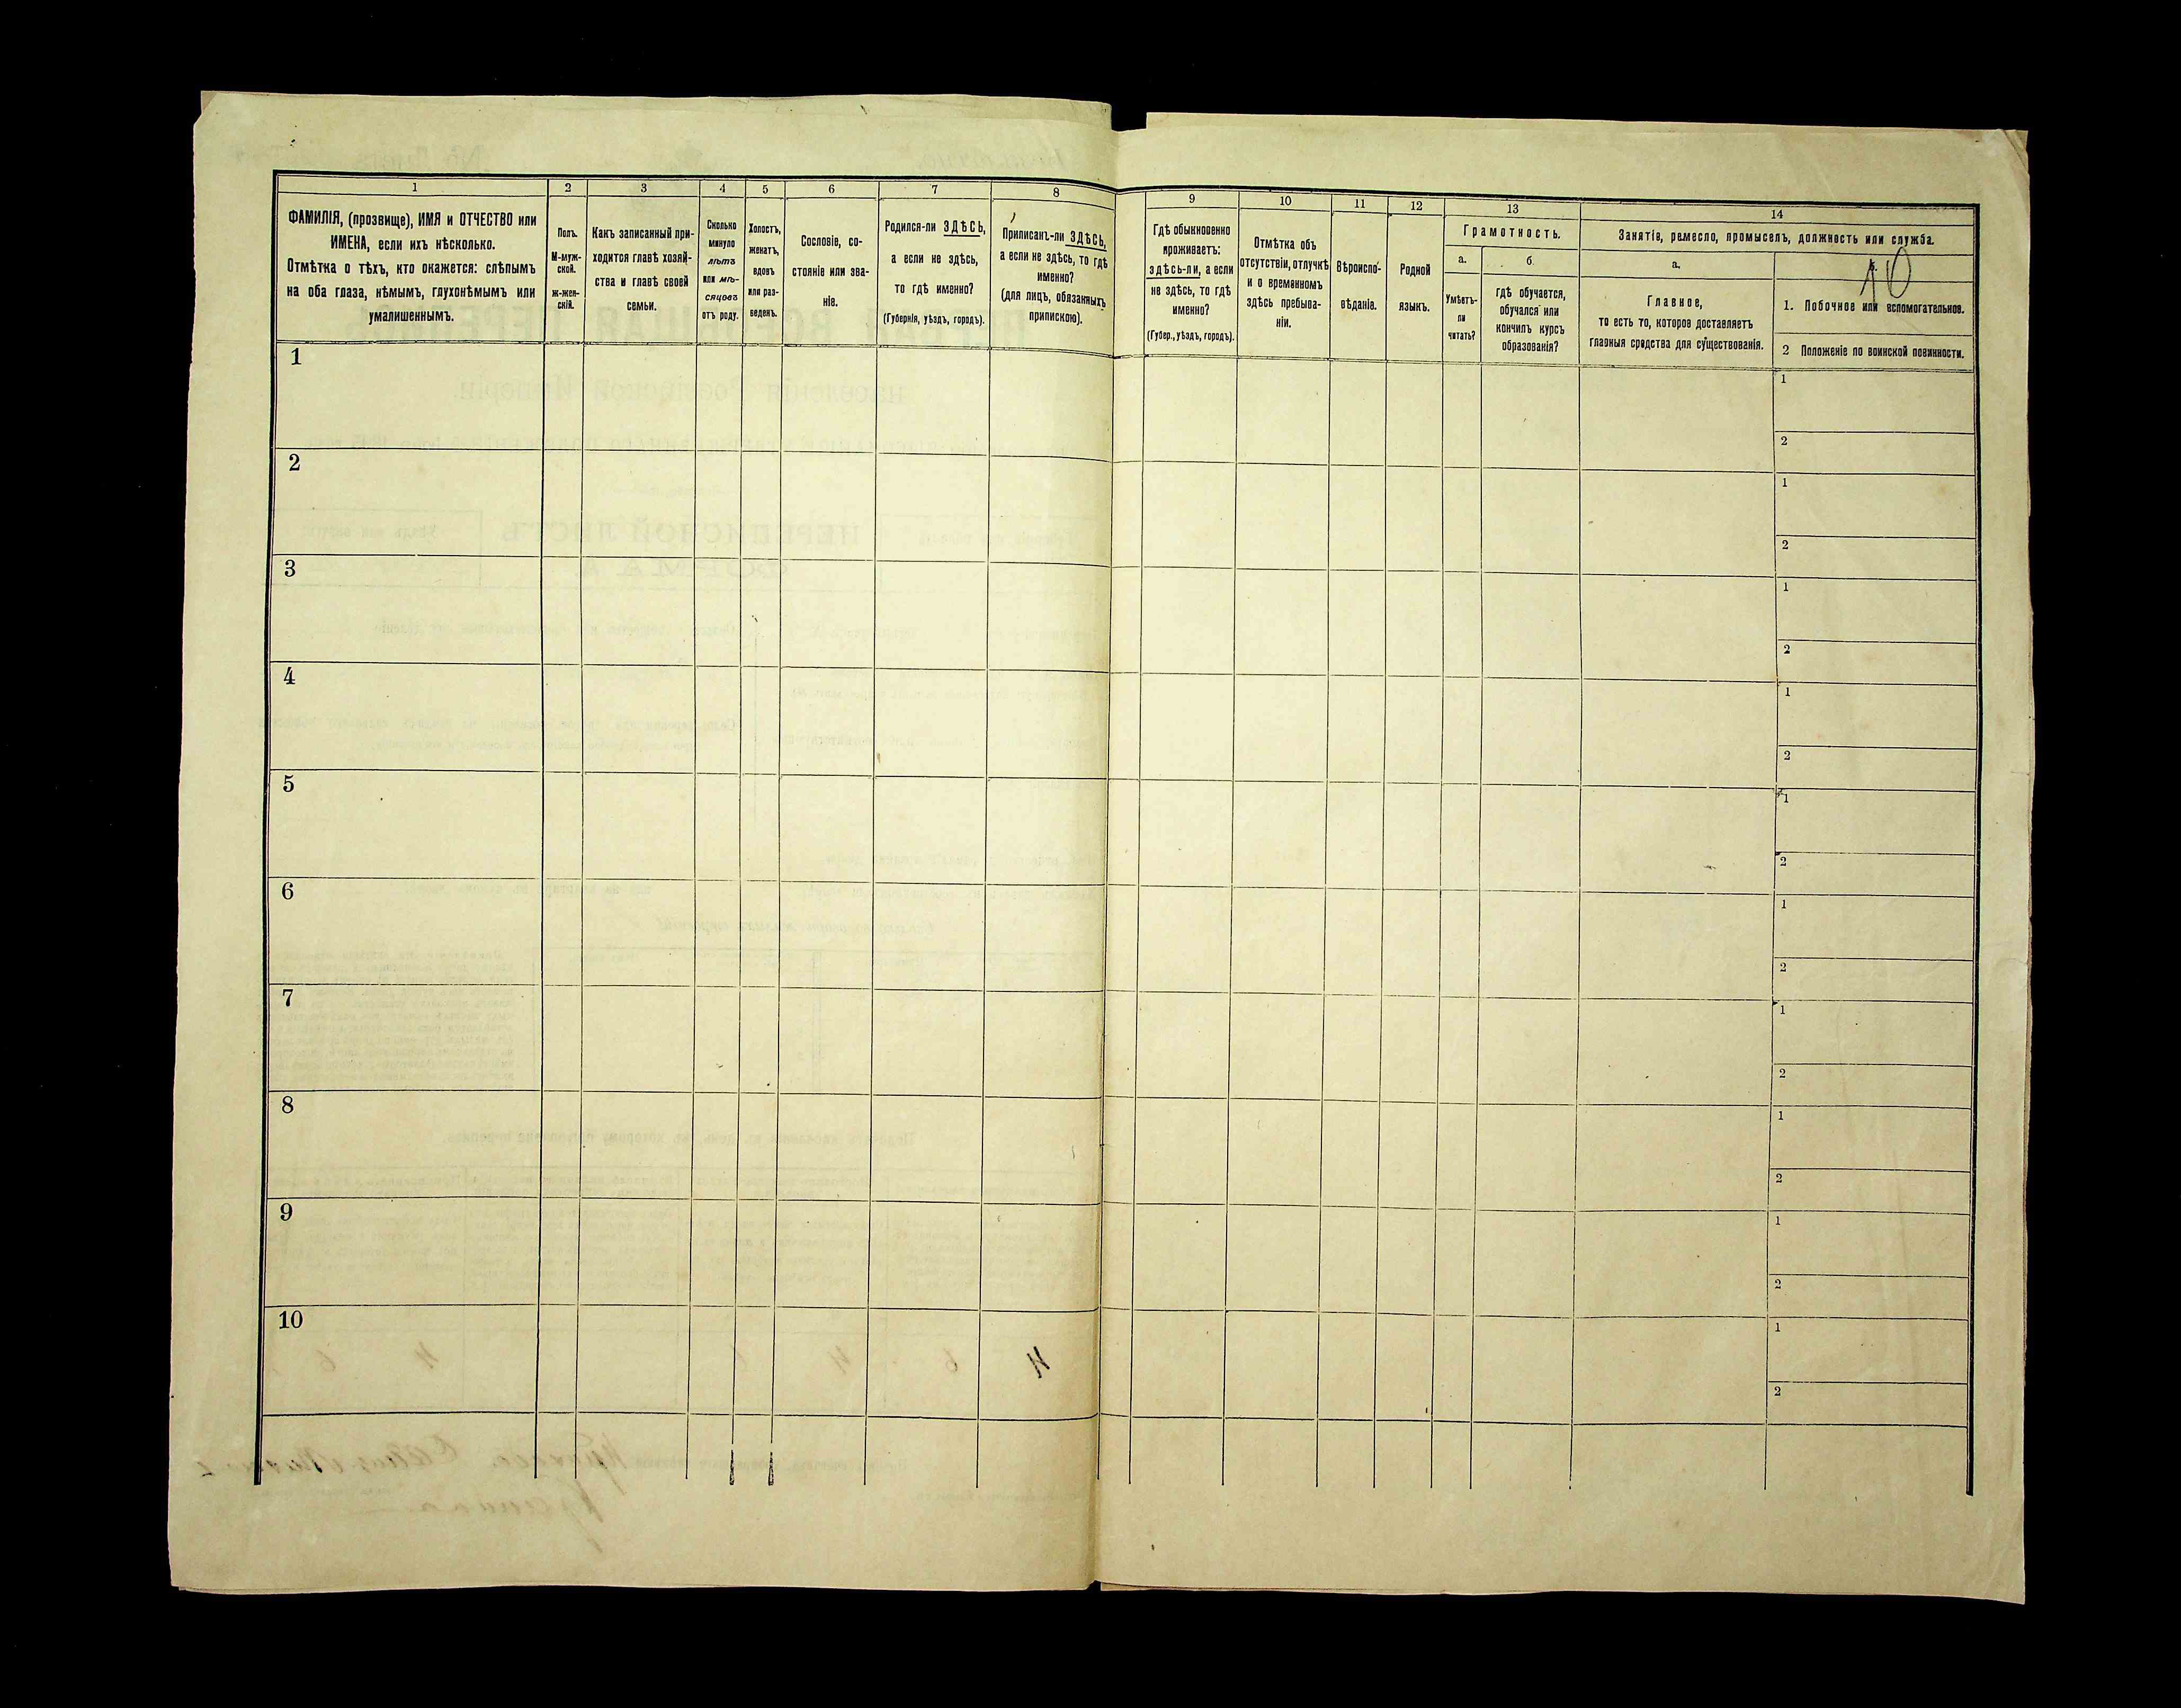 1
ФАМИЛІЯ, (прозвище), ИМЯ и ОТЧЕСТВО или
ИМЕНА, если ихъ нѣсколько.
Отмѣтка о тѣхъ, кто окажется: слѣпымъ
на оба глаза, нѣмымъ, глухонѣмымъ или
умалишеннымъ.
2
Полъ.
М-муж-
ской.
ж-жен-
скій.
3
Какъ записанный при-
ходится главѣ хозяй-
ства и главѣ своей
семьи.
4
Сколько
минуло
лѣтъ
или мѣ-
сяцовъ
отъ роду.
5
Холостъ,
женатъ,
вдовъ
или раз-
веденъ.
6
Сословіе, со-
стояніе или зва-
ніе.
7
Родился-ли ЗДѢСЬ,
а если не здѣсь,
то гдѣ именно?
(Губернія, уѣздъ, городъ).
8
Приписанъ-ли ЗДѢСЬ,
а если не здѣсь, то гдѣ
именно?
(для лицъ, обязанныхъ
припискою).
9
Гдѣ обыкновенно
проживаетъ:
здѣсь-ли, а если
не здѣсь, то гдѣ
именно?
(Губер., уѣздъ, городъ).
10
Отмѣтка объ
отсутствіи, отлучкѣ
и о временномъ
здѣсь пребыва-
ніи.
11
Вѣроиспо-
вѣданіе.
12
Родной
языкъ.
13
Грамотность.
а.
Умѣетъ-
ли
читать?
б.
гдѣ обучается,
обучался или
кончилъ курсъ
образованія?
14
Занятіе, ремесло, промыселъ, должность или служба.
а.
Главное,
то есть то, которое доставляетъ
главныя средства для существованія.
10
1. Побочное или вспомогательное.
2 Положеніе по воинской повинности.
1
1
2
2
1
2
3
1
2
4
1
2
5
1
2
6
1
2
7
1
2
8
1
2
9
1
2
10
1
2